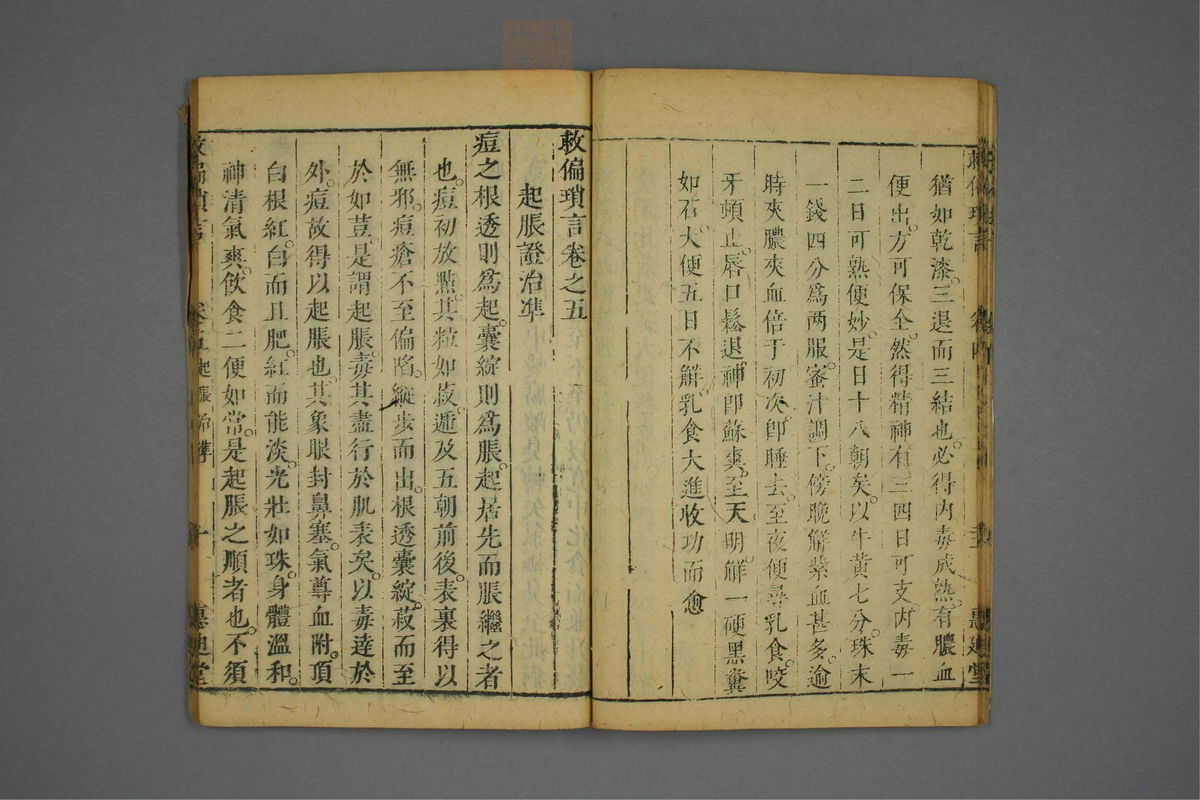 猶如乾漆。三退而三結也。必得內毒成熟。有膿血
便出。方可保全。然得精神有三四日可支。內毒一
二日可熟便妙。是日十八朝矣。以牛黃七分。珠末
一錢四分爲两服。蜜汁調下。傍晚觧紫血甚多。逾
時夾膿夾血倍于初次。卽睡去。至夜便尋乳食。咬
牙頓止。唇口鬆退。神卽蘇爽。至天明。觧一硬黑糞
如石。大便五日不觧。乳食大進。收功而愈
救偏瑣言卷之五
起脹證治凖
痘之根透則爲起。囊綻則爲脹。起居先而脹繼之者
也。痘初放㸃。其粒如菽。逓及五朝前後。表裏得以
無邪。痘瘡不至偏陷。縱步而出。根透囊綻。菽而至
於如荳。是謂起脹。毒其盡行於肌表矣。以毒逹於
外。痘故得以起脹也。其象眼封鼻塞。氣尊血附。頂
白根紅。白而且肥。紅而能淡。光壯如珠。身體溫和。
神清氣爽。飲食二便如常。是起脹之順者也。不須
救偏瑣言 卷五起脹治準 一 惠迪堂